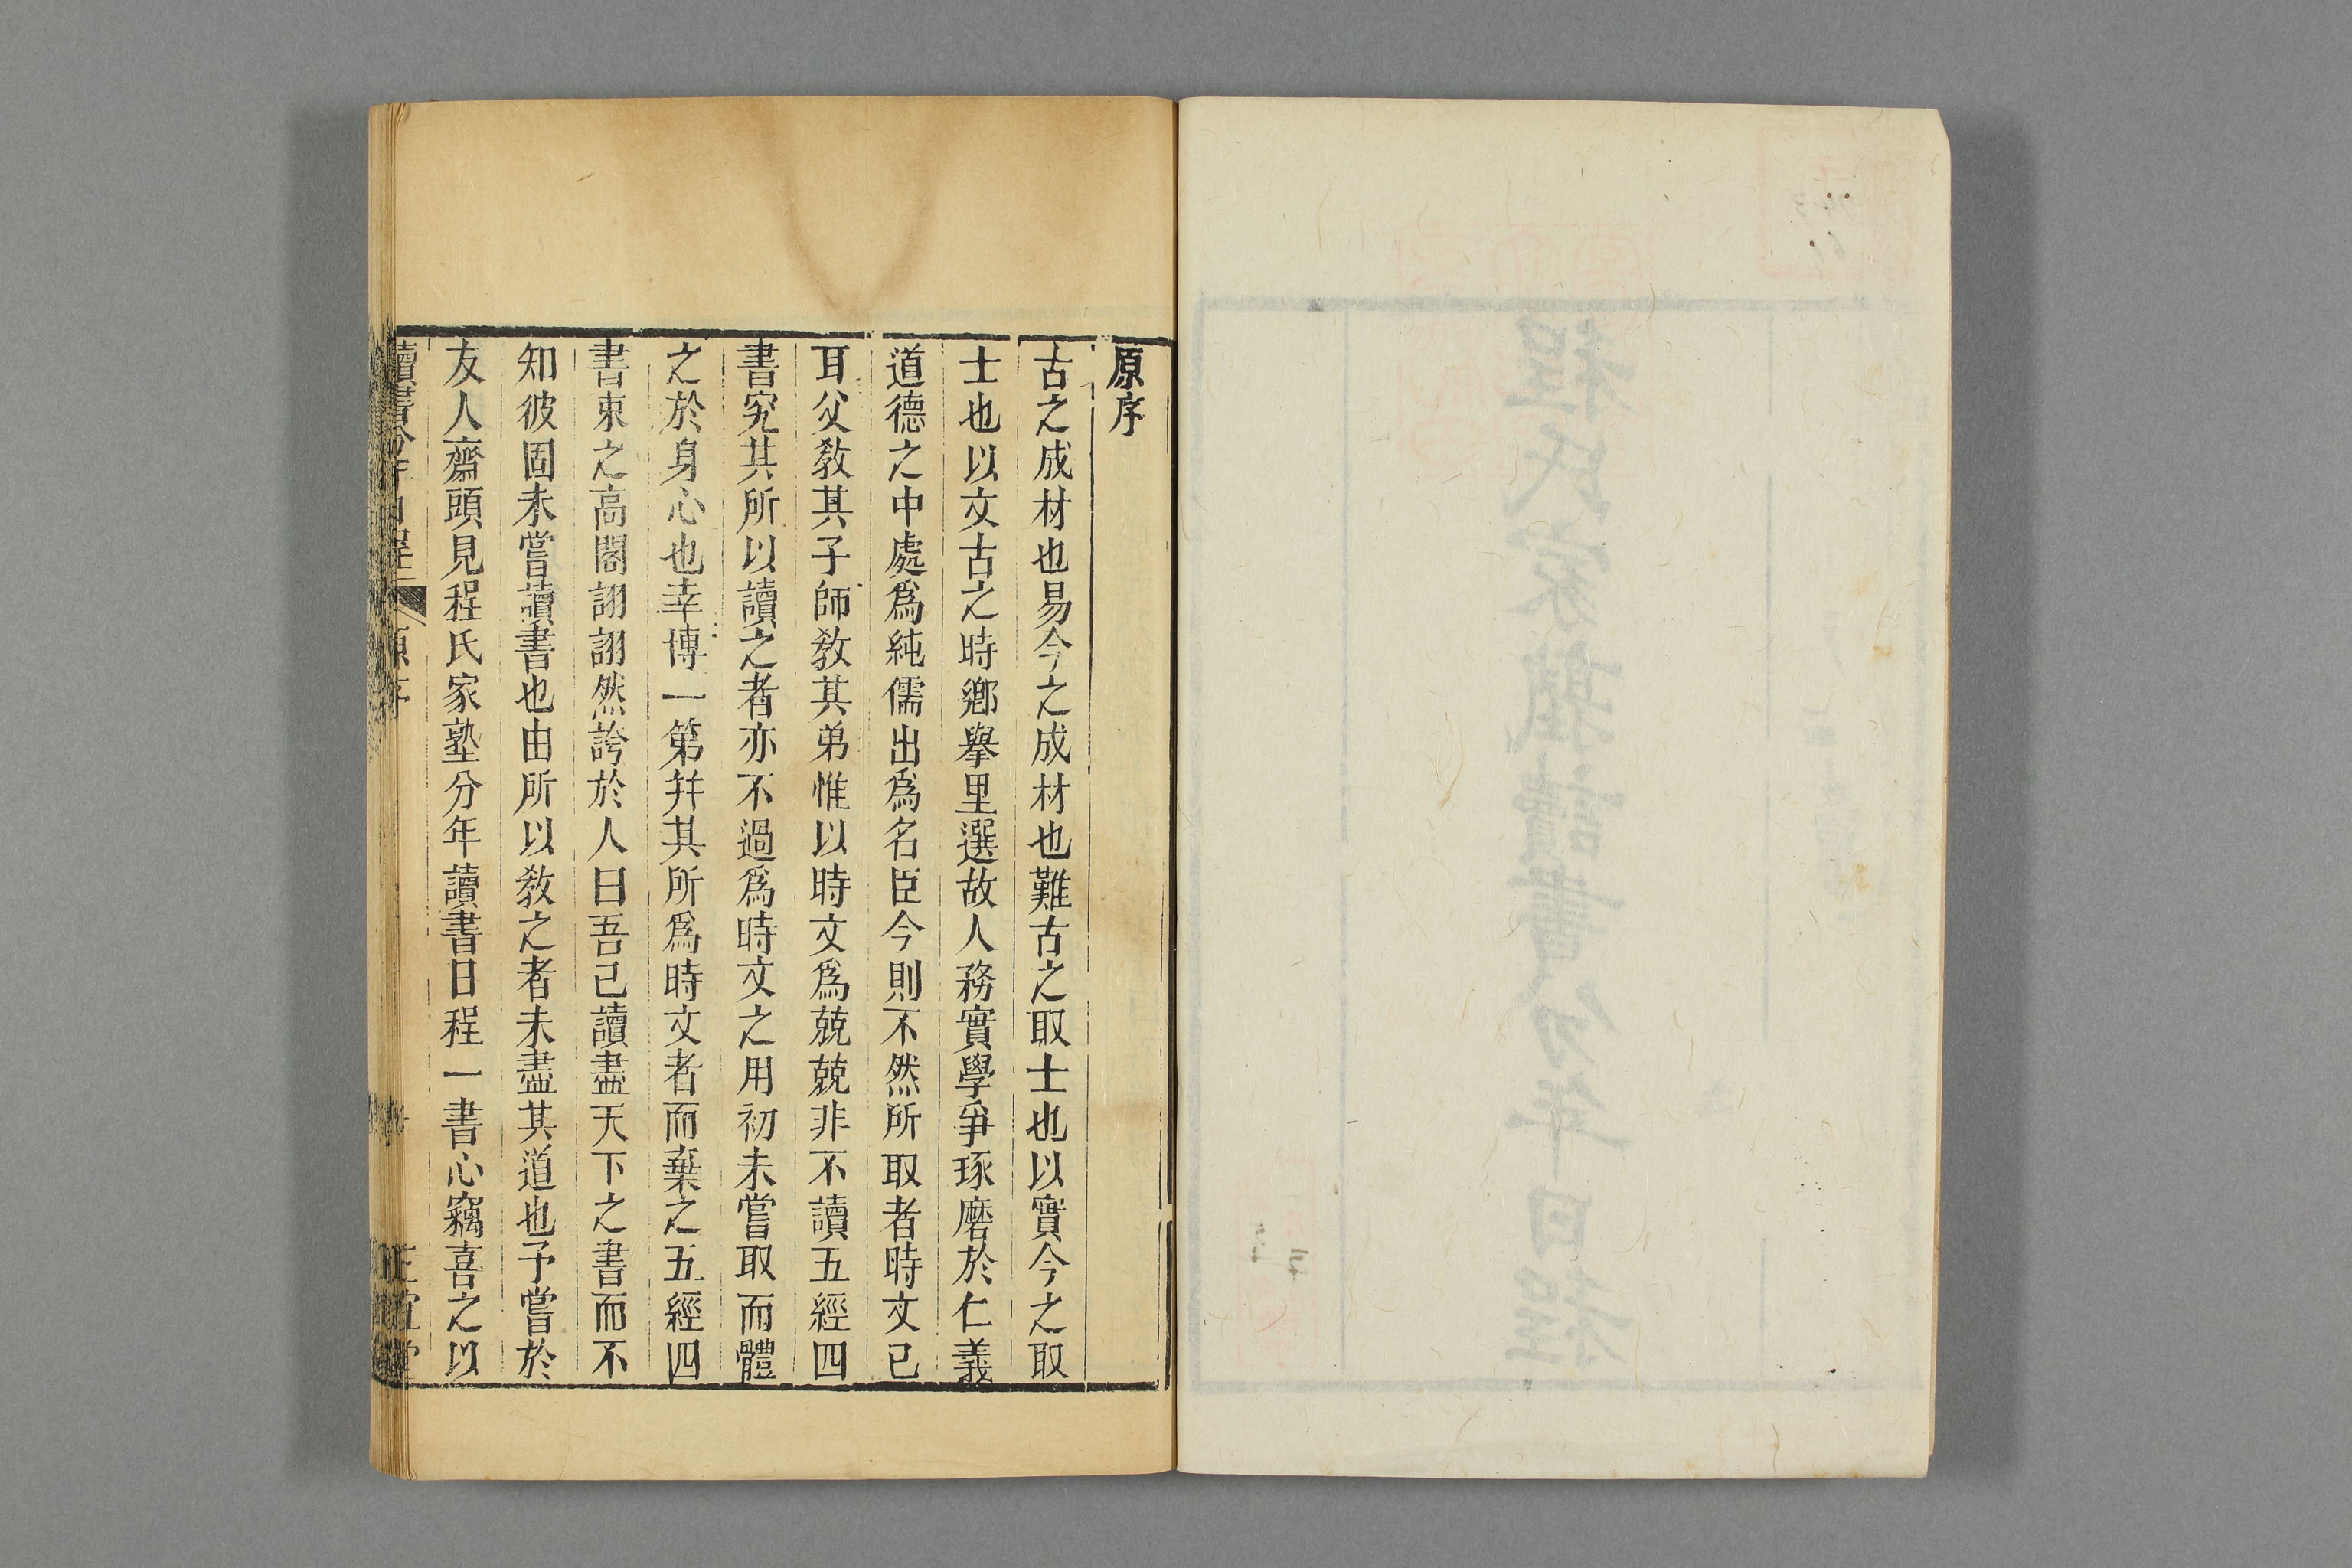 程氏家塾讀書分年日程
原序
古之成材也易今之成材也難古之取士也以實今之取
士也以文古之時鄉舉里選故人務實學爭琢磨於仁義
道德之中處爲純儒出爲名臣今則不然所取者時文已
耳父敎其子師敎其弟惟以時文爲兢兢非不讀五經四
書究其所以讀之者亦不過爲時文之用初未嘗取而體
之於身心也幸博一第幷其所爲時文者而棄之五經四
書束之高閣詡詡然誇於人曰吾已讀盡天下之書而不
知彼固未嘗讀書也由所以敎之者未盡其道也予嘗於
友人齋頭見程氏家塾分年讀書日程一書心竊喜之以
讀書分年日程
原序